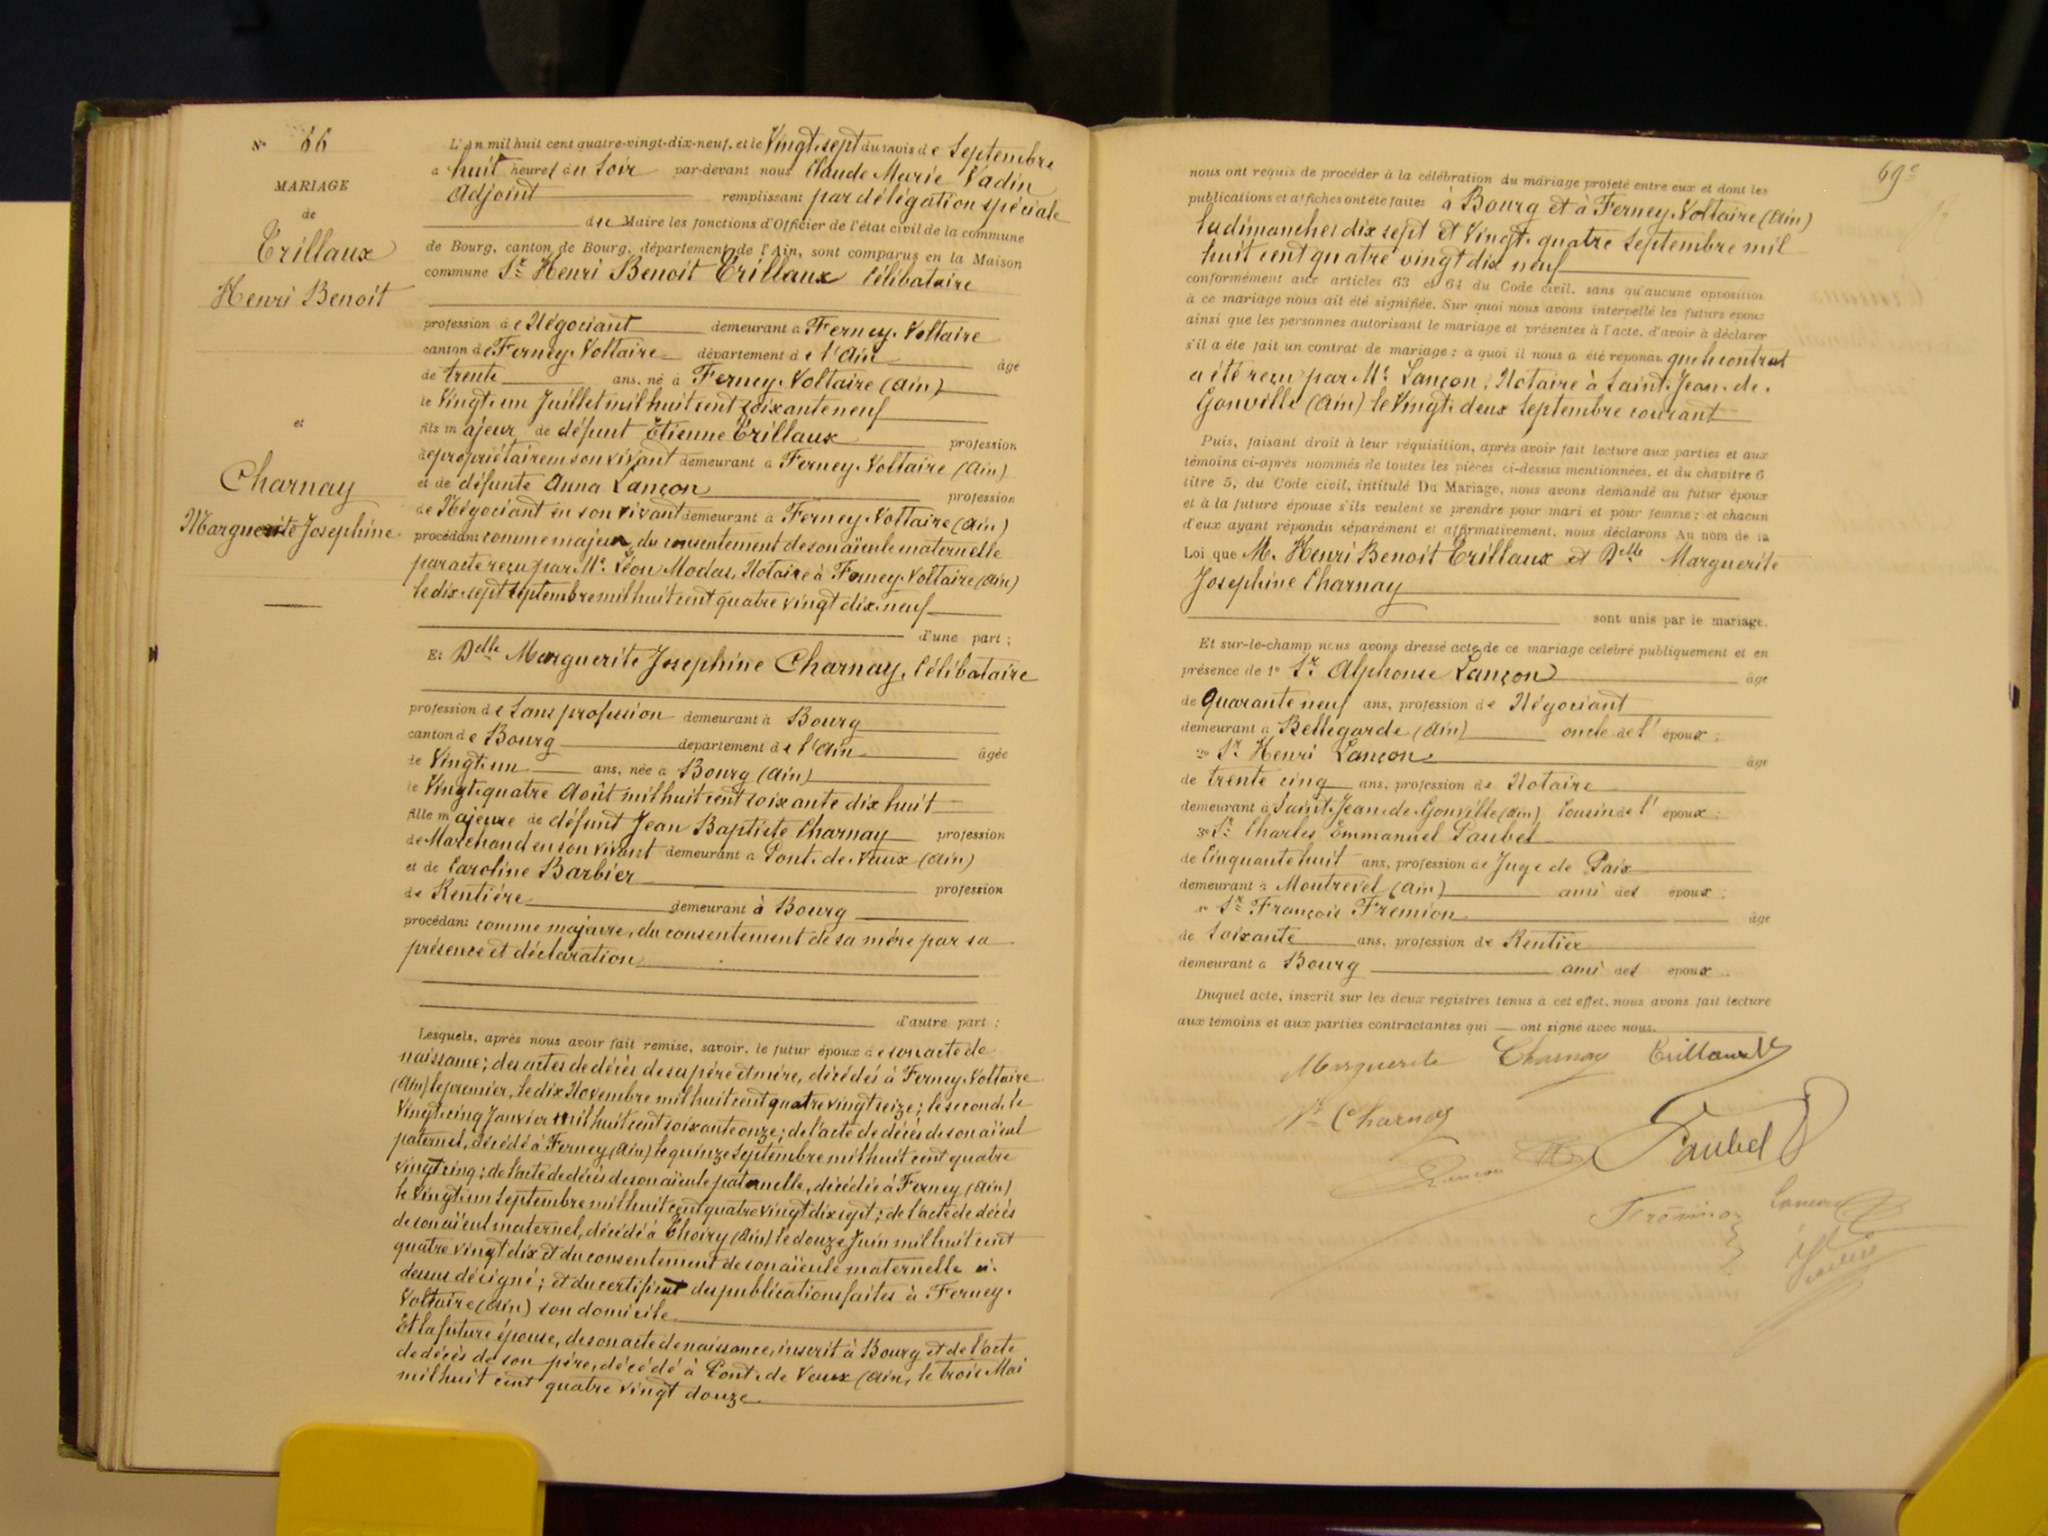 N° 66
MARIAGE
de
Trillaux
Henri Benoit
et
Charnay
Marguerite Josephine
L'An mil huit cent quatre-vingt-dix-neuf, et le Vingt sept du mois de Septembre
à huit heures du Soir par-devant nous Claude Marie Vadin
Adjoint remplissant par délégation spéciale
du Maire les fonctions d'Officier de l'état civil de la commune
de Bourg, canton de Bourg, département de l'Ain, sont comparus en la Maison
commune Sr Henri Benoit Trillaux Célibataire
profession de Négociant demeurant à Ferney-Voltaire
canton de Ferney-Voltaire département de l'Ain âgé
de trente ans, né à Ferney-Voltaire (Ain)
le Vingt-un Juillet mil huit cent soixante neuf
fils majeur de défunt Etienne Trillaux profession
de propriétaire en son vivant demeurant à Ferney-Voltaire (Ain)
et de défunte Anna Lançon profession
de Négociant en son vivant demeurant à Ferney-Voltaire (Ain)
procédant comme majeur, du consentement de son aïeule maternelle
par acte reçu par Me Léon Modas, Notaire à Ferney-Voltaire (Ain)
le dix-sept Septembre mil huit cent quatre vingt dix-neuf
d'une part ;
Et Delle Marguerite Josephine Charnay, Célibataire
profession de Sans profession demeurant à Bourg
canton de Bourg département de l'Ain âgée
de Vingt-un ans, née à Bourg (Ain)
le Vingt-quatre Août mil huit cent soixante dix huit
fille majeure de défunt Jean Baptiste Charnay profession
de Marchand en son vivant demeurant à Pont-de-Vaux (Ain)
et de Caroline Barbier profession
de Rentière demeurant à Bourg
procédant comme majeure, du consentement de sa mère par sa
présence et déclaration
d'autre part ;
Lesquels, après nous avoir fait remise, savoir, le futur époux de son acte de
naissance ; des actes de décès de ses père et mère, décédés à Ferney-Voltaire
(Ain) le premier, le dix Novembre mil huit cent quatre vingt seize ; le second, le
Vingt-cinq Janvier mil huit cent soixante onze ; de l'acte de décès de son aïeul
paternel, décédé à Ferney (Ain) le quinze Septembre mil huit cent quatre
vingt cinq ; de l'acte de décès de son aïeule paternelle, décédée à Ferney (Ain)
le Vingt-un Septembre mil huit cent quatre vingt dix sept ; de l'acte de décès
de son aïeul maternel, décédé à Thoiry (Ain) le douze Juin mil huit cent
quatre vingt dix et du consentement de son aïeule maternelle ci-
dessus désigné ; et du certificat des publications faites à Ferney-
Voltaire (Ain) son domicile
Et la future épouse, de son acte de naissance, inscrit à Bourg et de l'acte
de décès de son père, décédé à Pont-de-Vaux (Ain, le trois Mai
mil huit cent quatre vingt douze
69e
nous ont requis de procéder à la célébration du mariage projeté entre eux et dont les
publications et affiches ont été faites à Bourg et à Ferney-Voltaire (Ain)
les dimanches dix sept et Vingt-quatre Septembre mil
huit cent quatre vingt dix neuf
conformément aux articles 63 et 64 du Code civil, sans qu'aucune opposition
à ce mariage nous ait été signifiée. Sur quoi nous avons interpellé les futurs époux
ainsi que les personnes autorisant le mariage et présentes à l'acte, d'avoir à déclarer
s'il a été fait un contrat de mariage ; à quoi il nous a été répondu que le contrat
a été reçu par Me Lançon, Notaire à Saint-Jean-de-
Gonville (Ain) le Vingt-deux Septembre courant
Puis, faisant droit à leur réquisition, après avoir fait lecture aux parties et aux
témoins ci-après nommés de toutes les pièces ci-dessus mentionnées, et du chapitre 6
titre 5, du Code civil, intitulé Du Mariage, nous avons demandé au futur époux
et à la future épouse s'ils veulent se prendre pour mari et pour femme ; et chacun
d'eux ayant répondu séparément et affirmativement, nous déclarons Au nom de la
Loi que M. Henri Benoit Trillaux et Delle Marguerite
Josephine Charnay
sont unis par le mariage.
Et sur-le-champ nous avons dressé acte de ce mariage célébré publiquement et en
présence de 1° Sr Alphonse Lançon âgé
de Quarante neuf ans, profession de Négociant
demeurant à Bellegarde (Ain) oncle de l'époux ;
2° Sr Henri Lançon âgé
de trente cinq ans, profession de Notaire
demeurant à Saint-Jean-de-Gonville (Ain) Cousin de l'époux ;
3° Sr Charles Emmanuel Paubel
de Cinquante huit ans, profession de Juge de Paix
demeurant à Montrevel (Ain) ami des époux ;
4° Sr François Frémion âgé
de Soixante ans, profession de Rentier
demeurant à Bourg ami des époux.
Duquel acte, inscrit sur les deux registres tenus à cet effet, nous avons fait lecture
aux témoins et aux parties contractantes qui ont signé avec nous.
Marguerite Charnay Trillaux
Ve Charnay
Lançon Paubel
Frémion Lançon